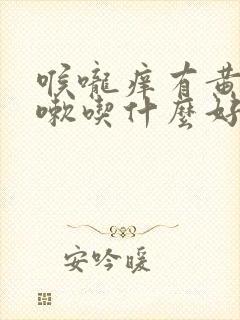 喉嚨痒有黄
嗽喫什麽好
安吟暖